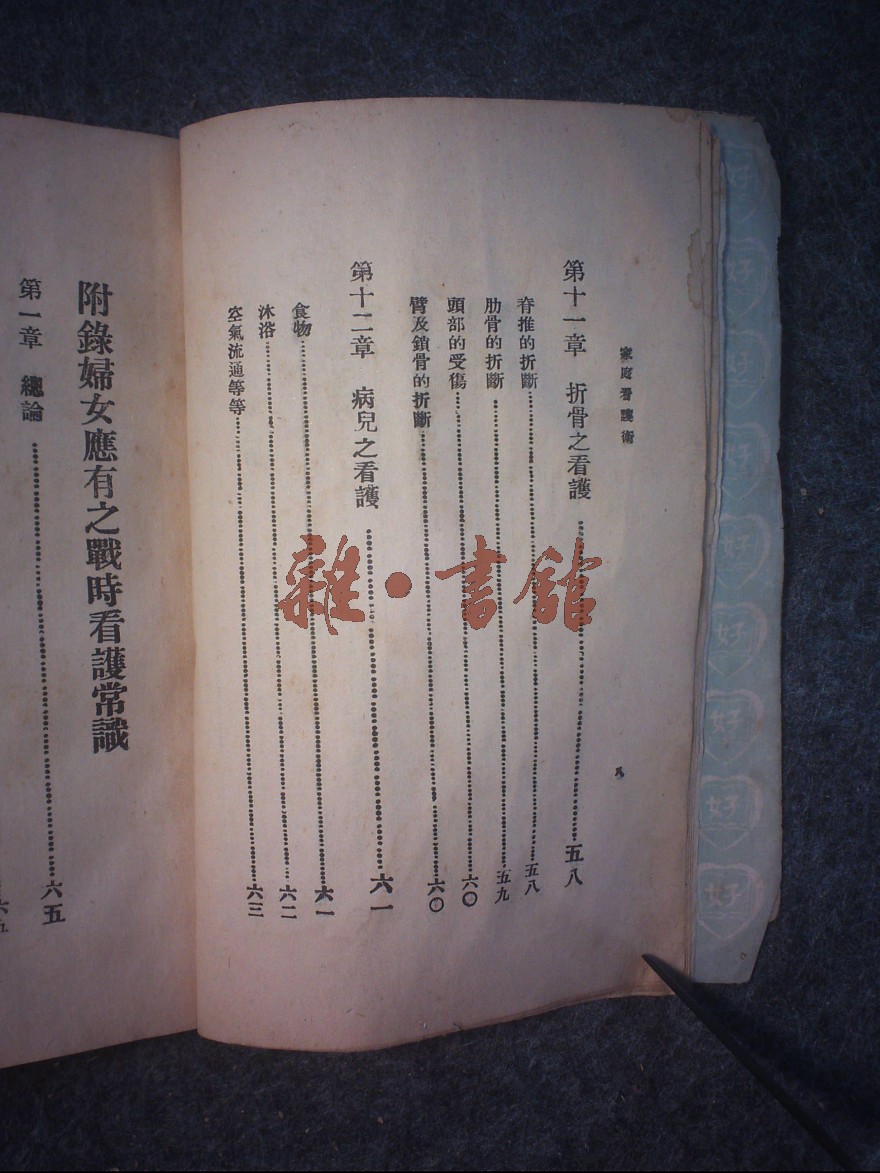 家庭看護術
八
第十一章 折骨之看護……五八
脊推的折斷……五八
肋骨的折斷……五九
頭部的受傷……六〇
臂及鎖骨的折斷……六〇
第十二章 病兒之看護……六一
食物……六一
沐浴……六二
空氣流通等等……六三
附錄婦女應有之戰時看護常識
第一章 總論……六五
六五
雜·書館
好
好
好
好
好
好
好
好
好